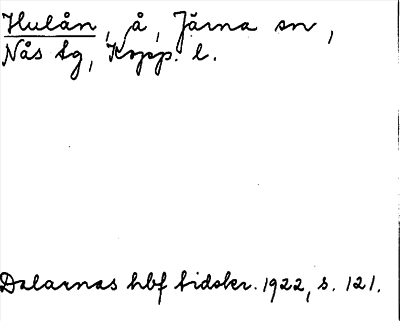 Hulån, å, Järna sn,
Nås tg, Kopp. l.
Dalarnas hbf tidskr. 1922, s. 121.